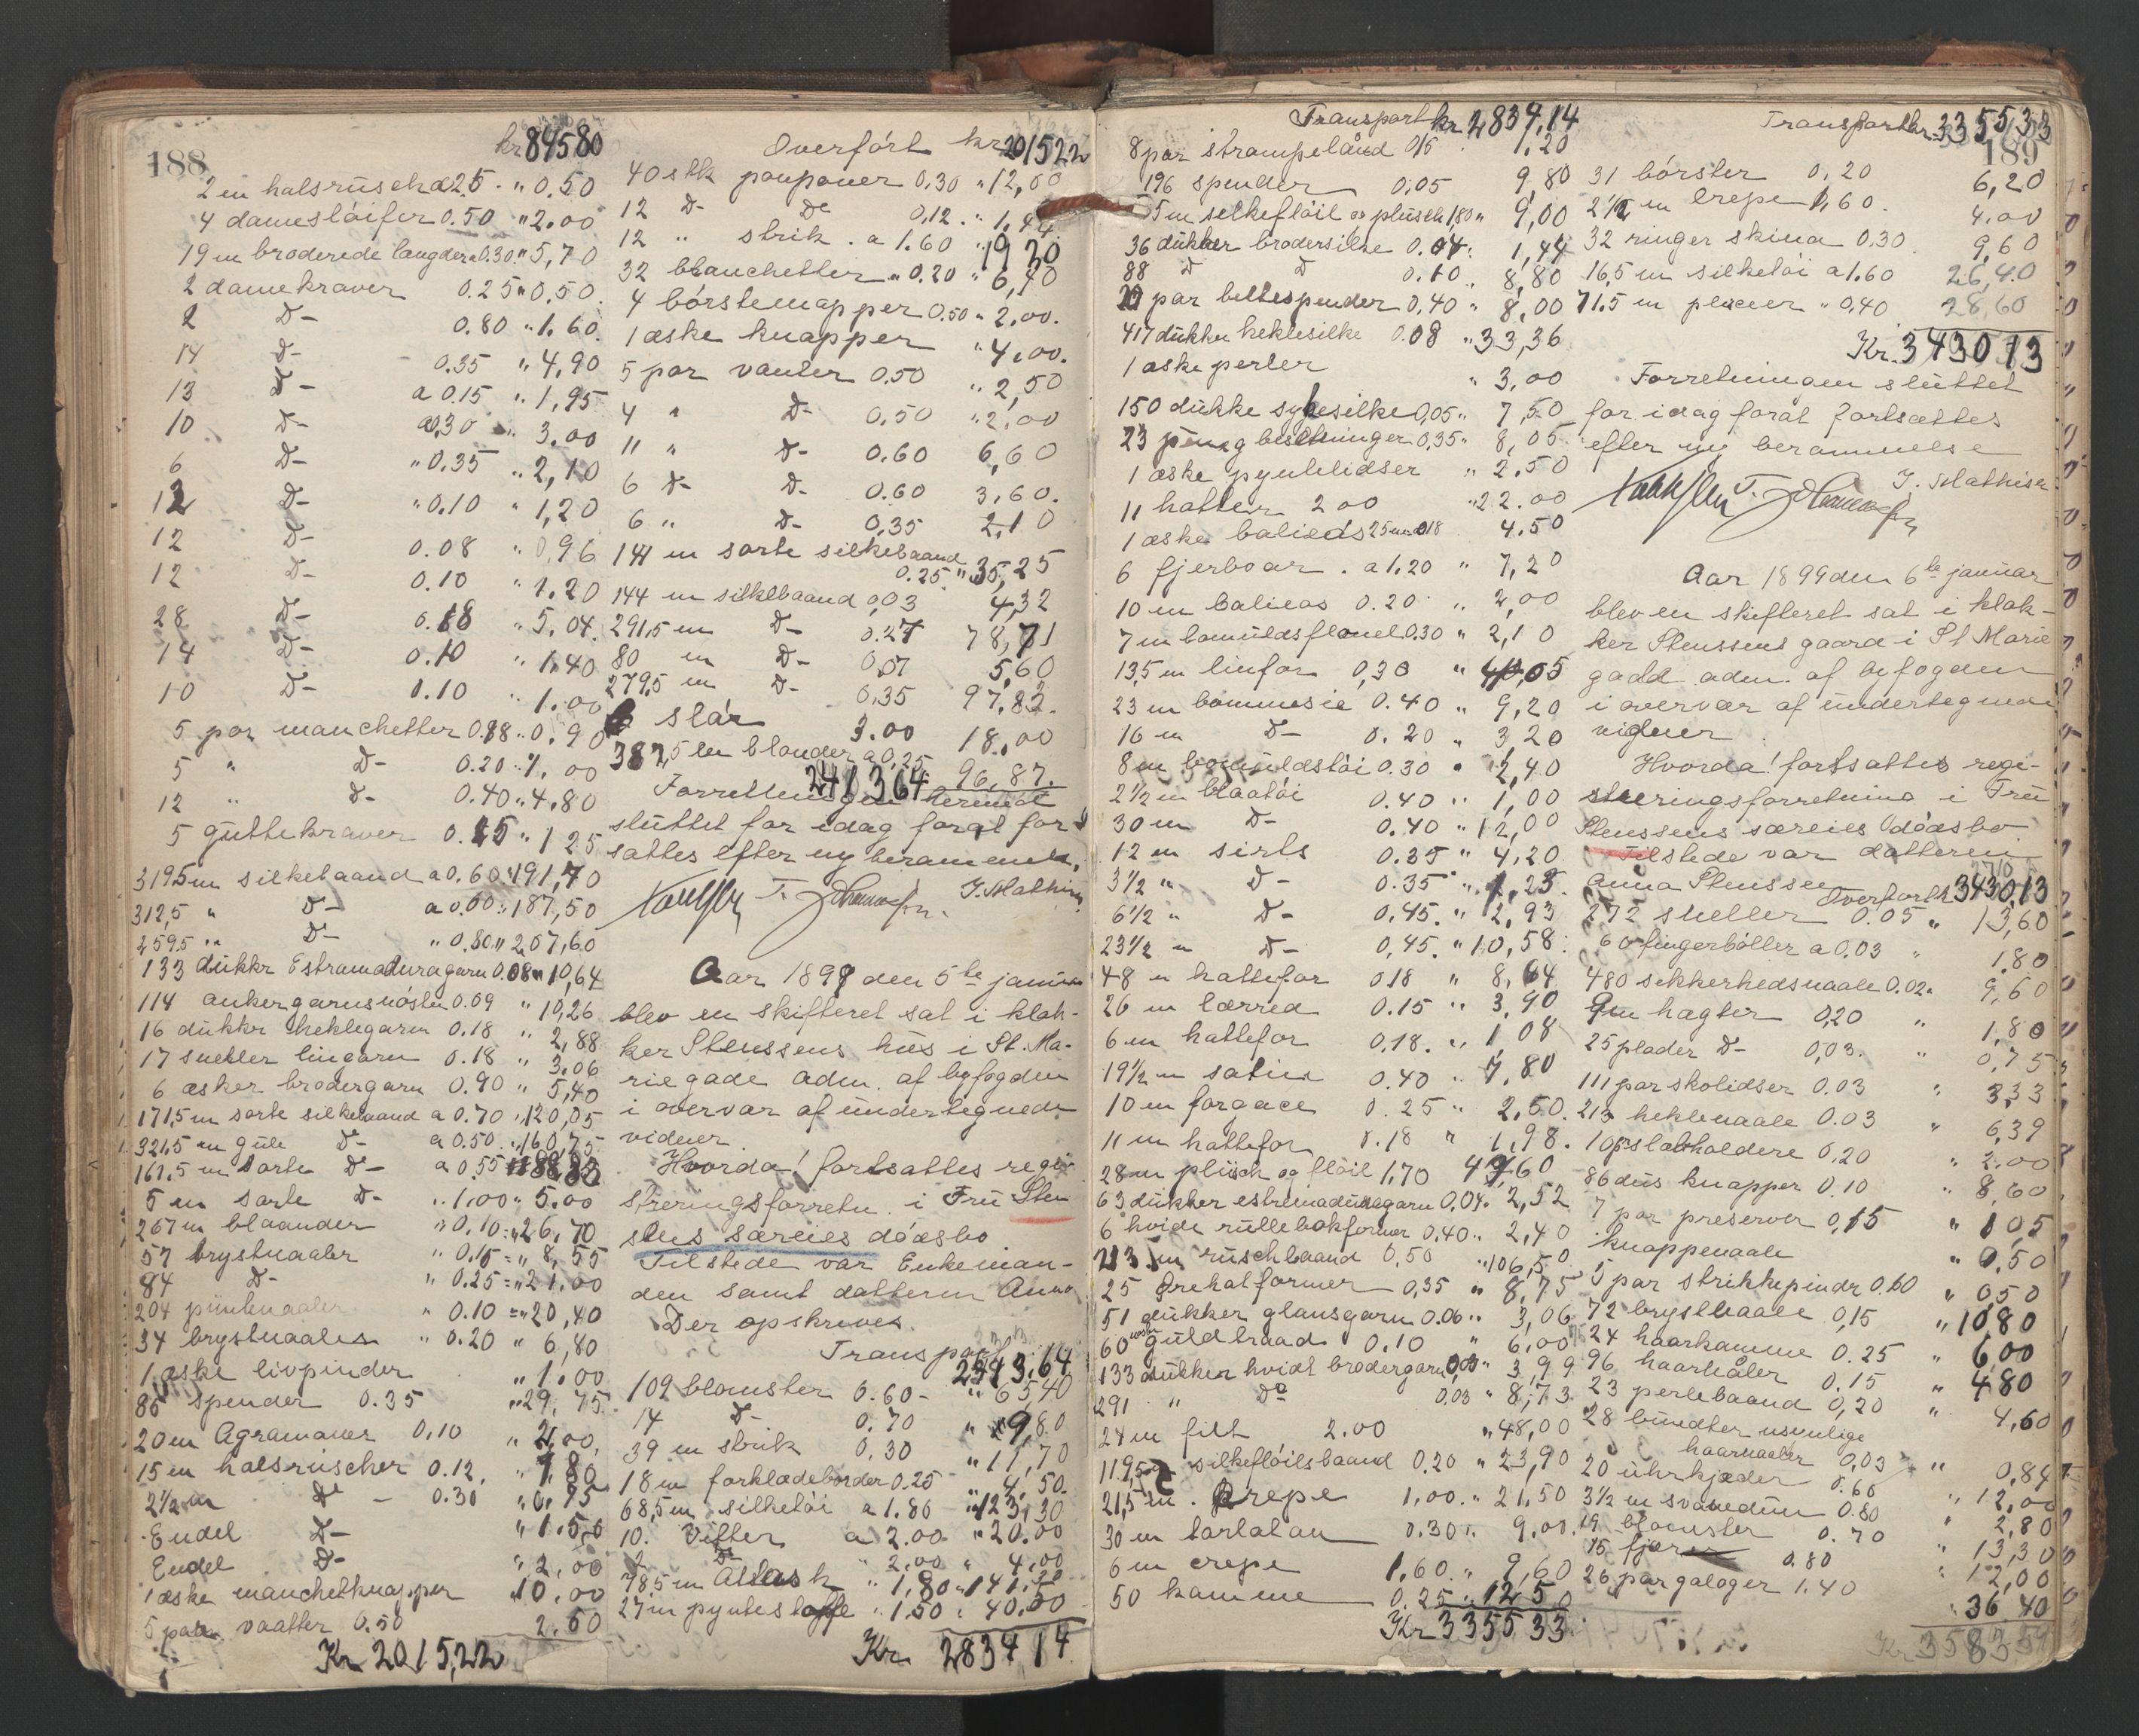 188
kr 845 80
2 m halsrüsch a 25 " 0.50
4 damesløifer 0.50 " 2.00
19 m broderede længder a 0.30 " 5,70
2 damekraver 0.25 " 0.50
2 D- 0.80 " 1.60
14 D- 0.35 " 4,90
13 D- a 0.15 " 1,95
10 D- a 0,30 " 3.00
6 D- " 0.35 " 2,10
12 D- " 0.10 " 1,20
12 D- 0.08 " 0,96
12 D- 0.10 " 1.20
28 D- 0.18 " 5.04
14 D- 0.10 " 1.40
10 D- 0.10 " 1.00
5 par manchetter 0.18 " 0.90
5 " D- 0.20 " 1.00
12 " D- 0.40 " 4.80
5 guttekraver 0.25 " 1 25
319.5 m silkebaand a 0.60 " 191,70
312,5 " D- a 0.60 " 187,50
259.5 " D- " 0.80 " 207,60
133 dukker Estramaduragarn 0.08 " 10,64
114 ankergarnsnøster 0.09 " 10,26
16 dukker heklegarn 0.18 " 2,88
17 sneller lingarn 0.18 " 3.06
6 æsker brodergarn 0.90 " 5,40
171,5 m sorte silkebaand a 0.70 " 120,05
321,5 m gule D- a 0.50 " 160,75
161,5 m sorte D- a 0.55 88 83
5 m sorte D- " 1.00 " 5.00
267 m blaander " 0.10 = " 26,70
57 brystnaaler " 0.15 = " 8,55
84 D- " 0.25 = " 21,00
204 püntnaaler " 0.10 = " 20,40
34 brystnaaler " 0.20 " 6,80
1 æske livpinder " 1.00
85 spender 0.35 " 29,75
20 m Agramaner 0,10 " 2,00
15 m halsrüscher 0.12 " 1,80
2 1/2 m D- - 0.30 " 0,75
Endel D- " 1.50
Endel D- " 2,00
1 æske manchetknapper 10.00
5 par vaatter 0.50 2.50
Kr 2015,22
Overført kr 2015 22
40 stk pomponer 0,30 " 12,00
12 D- D- 0,12 " 1,44
12 " strik . a 1.60 " 19 20
32 blanchetter " 0.20 " 6,40
4 børstemapper 0.50 " 2,00
1 æske knapper " 4.00
5 par vanter 0.50 " 2,50
4 " D- 0,50 " 2,00
11 " D- 0.60 6,60
6 D- D- 0.60 3,60
6 " D- 0,35 2,10
141 m sorte silkebaand
0.25 " 35,25
144 m silkebaand 0,03 4,32
291,5 m D- 0.27 78,71
80 m D- 0,07 5,60
279,5 m D- 0,35 97,83
6 slør 3.00 18.00
387,5 m blonder a 0,25 96,87
2413 64
Forretningen hermed
sluttet for idag forat fort-
sattes efter ny berammelse
J. Mathisen
Aar 1899 den 5te januar
blev en skifteret sat i klok-
ker Stenssens hus i St. Ma-
riegade adm. af byfogden
i overvær af undertegnede
vidner
Hvorda! fortsattes regi-
streringsforretn. i Fru Sten-
sens særeies dødsbo
Tilstede var Enkeman-
den samt datteren Anna
Der opskreves
Transport 2543,64
109 blomster 0.60 - " 65,40
14 D- 0.70 " 9,80
39 m strik 0,30 " 11,70
18 m forklædeborder 0.25 4,50
68,5 m silketøi a 1.80 " 123,30
10 Vifter a 2.00 " 20.00
2 D- " 2,00 " 4,00
78,5 m Atlask " 1,80 " 141,30
27 m pyntestoffe " 1,50 " 40,50
Kr 2834 14
Transport kr 2834,14
8 par strømpebånd 0,15 1,20
196 spender 0,05 9,80
5 m silkefløil og plüsch 1,80 " 9,00
36 dukker brodersilke 0.04 " 1,44
88 D D 0.10 8,80
20 par beltespender 0,40 " 8,00
417 dukker heklesilke 0.08 " 33,36
1 æske perler " 3,00
150 dukke sysilke 0,05 " 7,50
23 besetninger 0,35 " 8,05
1 æske pyntelidser " 2.50
11 hatter 2 00 " 22.00
1 æske 25 m 0.18 4.50
6 fjerboar . a 1.20 " 7,20
10 m calicos 0.20 " 2,00
7 m bomuldsflanel 0.30 " 2,10
13,5 m linfor 0,30 " 4,05
23 m bommesie 0.40 " 9,20
16 m D- 0.20 " 3,20
8 m bomuldstøi 0.30 " 2,40
2 1/2 m blaatøi 0.40 " 1,00
30 m D- 0.40 " 12,00
12 m sirts 0.35 " 4,20
3 1/2 " D- 0.35 " 1,23
6 1/2 " D- 0,45 " 2,93
23 1/2 " D- 0,45 " 10,58
48 m hattefor 0.18 " 8,64
26 m lærred 0.15 " 3,90
6 m hattefor 0.18 " 1 08
19 1/2 m satin 0.40 " 7,80
10 m forgace 0.25 " 2,50
11 m hattefor 0.18 " 1,98
28 m plüsch og fløil 1,70 47,60
63 dukker estremaduragarn 0,04 " 2,52
6 hvide rullebokformer 0.40 " 2,40
213 m rüschbaand 0,50 " 106,50
25 former 0,35 " 8,75
51 dukker glansgarn 0.06 " 3,06
60 guldtraad 0.10 " 6,00
133 dukker hvidt brodergarn 0,03 " 3,99
291 " Do 0,03 " 8,73
24 m filt 2.00 " 48,00
119,5 m silkefløilsbaand 0.20 " 23,90
21,5 m . Crepe 1,00 " 21,50
30 m tarlatan 0.30 " 9,00
6 m crepe 1,60 " 9,60
50 kamme 0.25 " 12 50
Kr 3355 33
Transport kr 3355,33
189
31 børster 0.20 6,20
2 1/2 m Crepe 1,60 4,00
32 ringer skina 0,30 9,60
16,5 m silketøi a 1.60 26,40
71,5 m placer " 0,40 28,60
Kr. 3430 13
Forretningen sluttet
for idag forat fortsættes
efter ny berammelse
J. Mathisen
Aar 1899 den 6te januar
blev en skifteret sat i klok-
ker Stenssens gaard i St Marie
gade adm. af byfogden
i overvær af undertegnede
vidner
Hvorda! fortsattes regi-
streringsforretning i Fru
Stenssens særeies dødsbo
Tilstede var datteren
Anna Stenssen
Overført kr 3430,13
272 sneller 0.05 " 13,60
60 fingerbøller a 0.03 " 1,80
480 sikkerhedsnaale 0.02 " 9,60
9 m hagter 0,20 " 1,80
25 plader D- 0,03 " 0,75
111 par skolidser 0.03 " 3,33
213 heklenaale 0.03 " 6,39
10 holdere 0,20 " 2,00
86 dus knapper 0.10 " 8,60
7 par preserver 0,15 " 1 05
knappenaale " 0,50
5 par strikkepinde 0.10 " 0 50
72 brystnaale 0,15 " 10 80
24 haarkamme 0.25 " 6,00
96 haarnåler 0.15 " 4 80
23 perlebaand 0,20 " 4,60
28 bundter usynlige
haarnaaler 0,03 " 0,84
20 uhrkjæder 0.60 " 12,00
3 1/2 m svanedun 0.80 " 2,80
19 blomster 0.70 " 13,30
15 fjærer 0.80 " 12,00
26 par galoger 1.40 " 36 40
Kr 3583 59